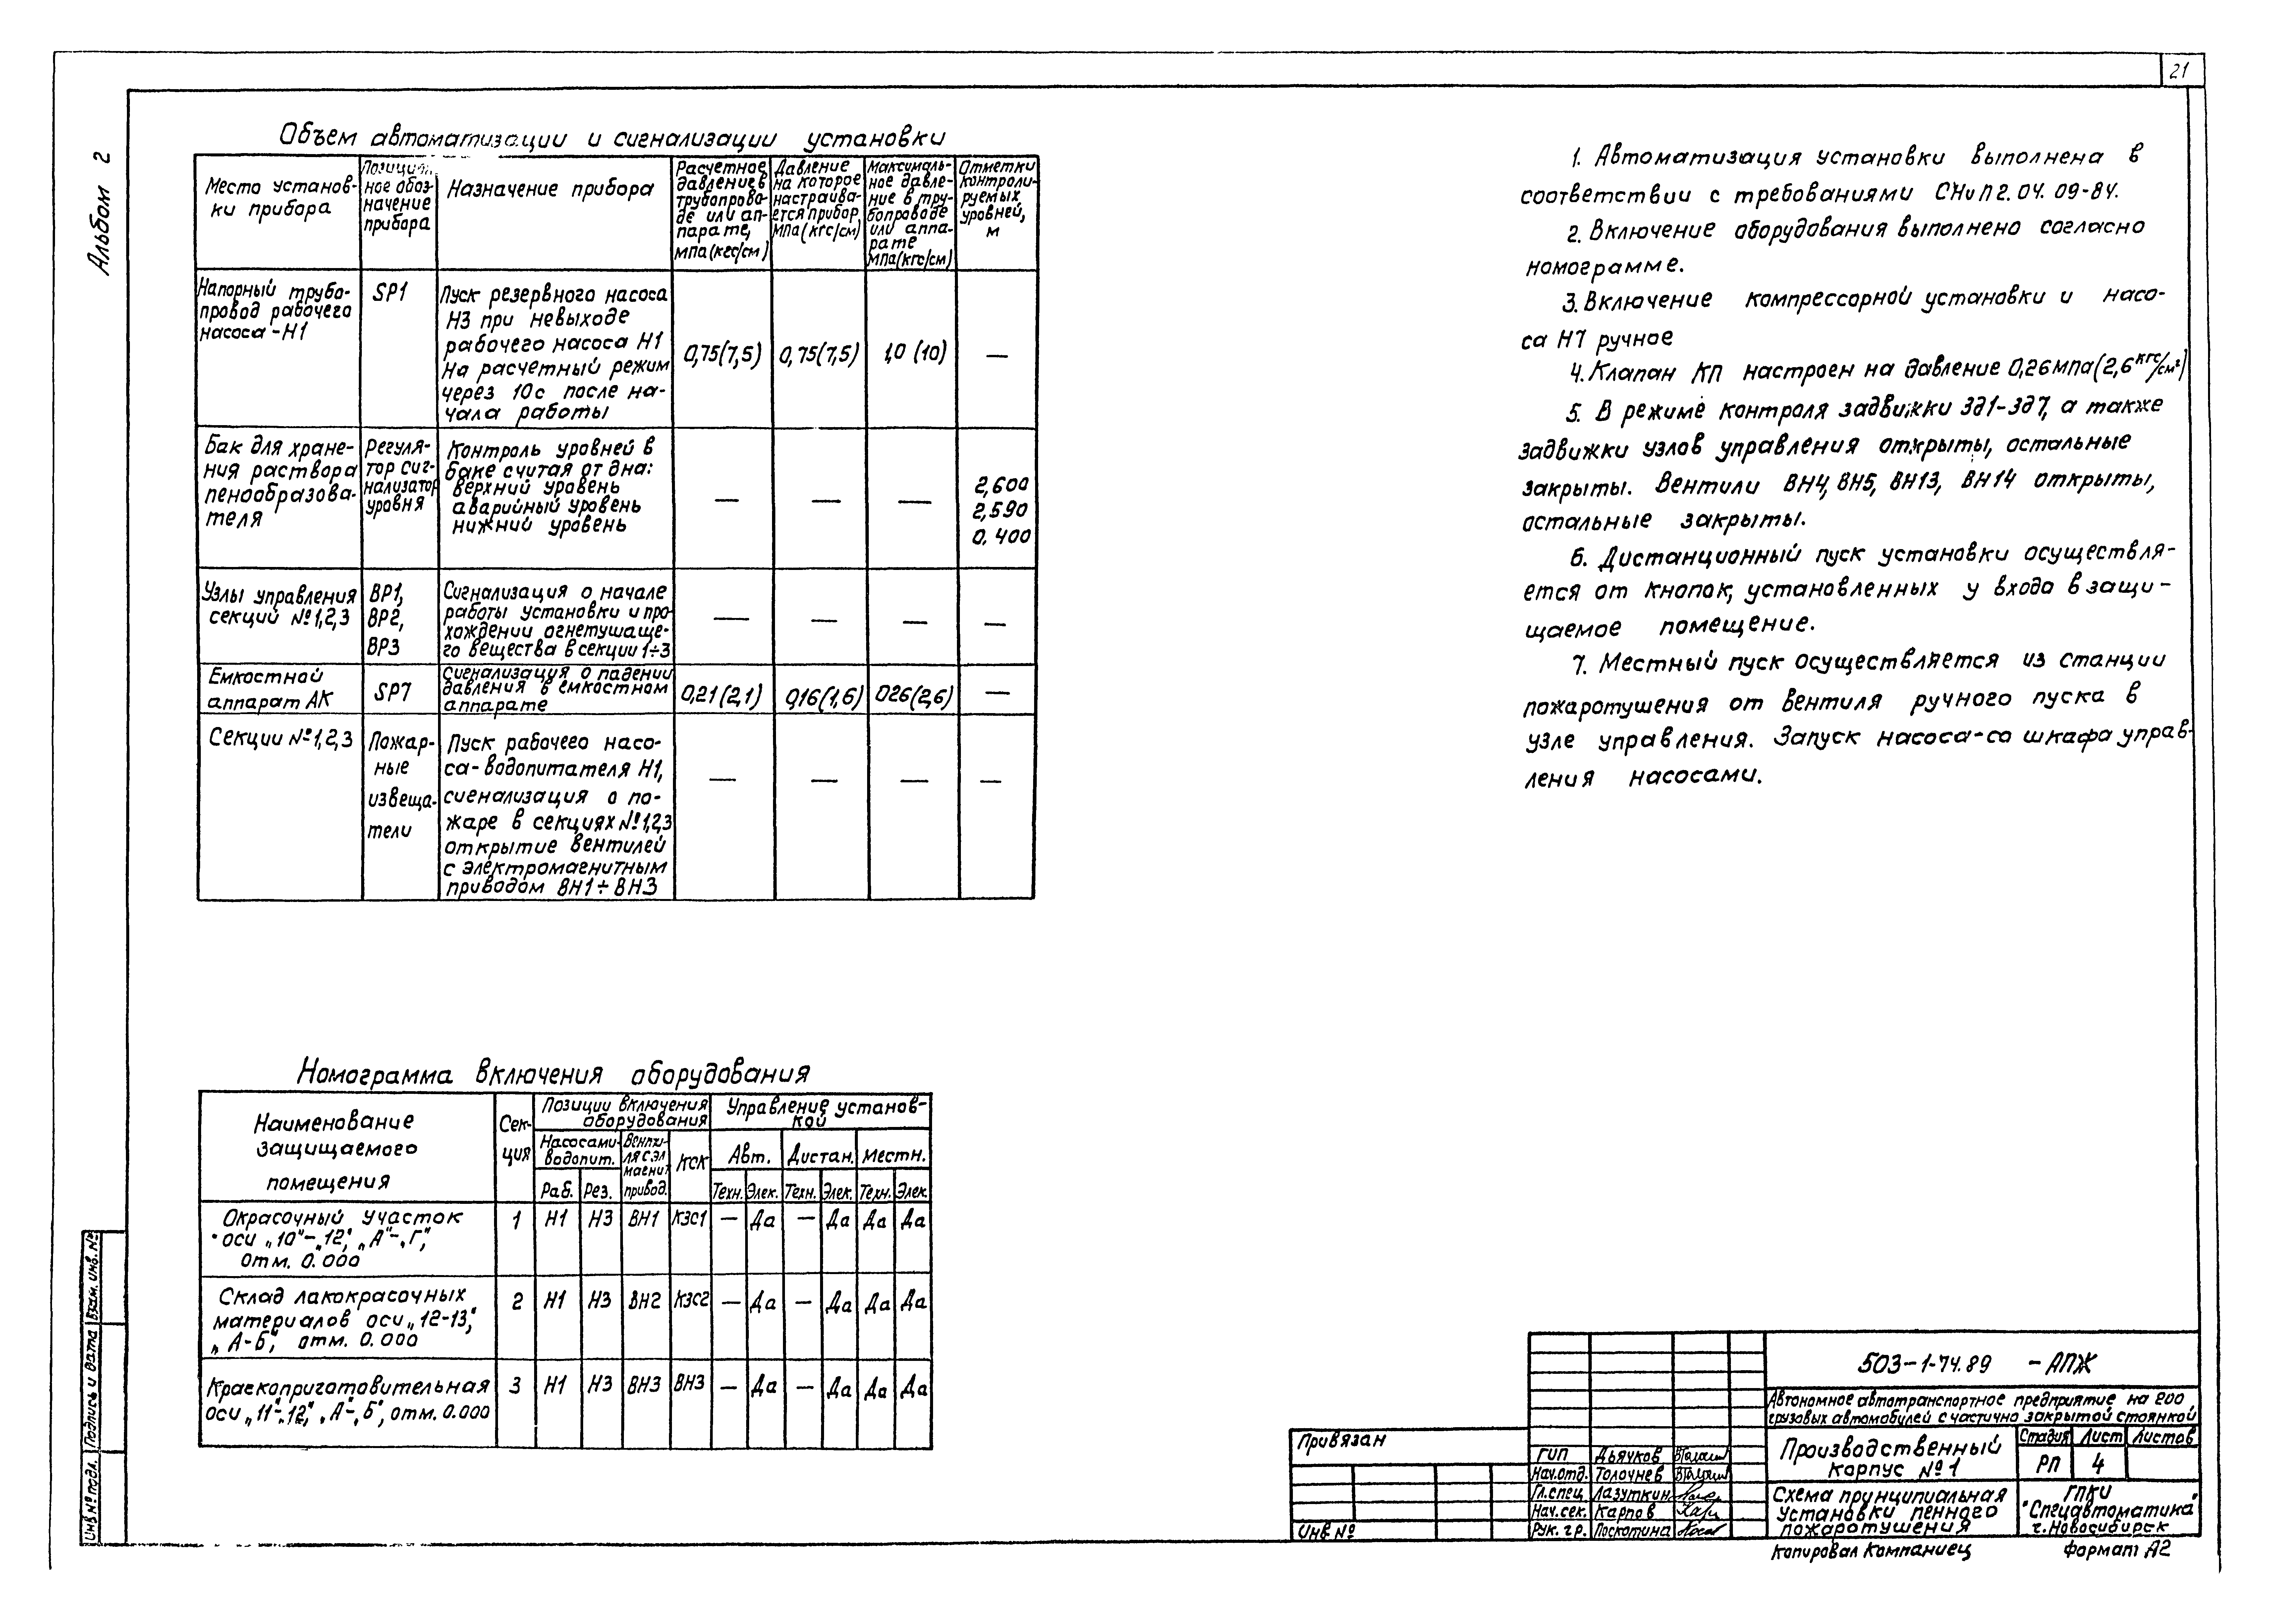 21
Альбом 2
Объем автоматизации и сигнализации установки
Место установ-
ки прибора
Позицион-
ное обоз-
начение
прибора
Назначение прибора
Расчетное
давление в
трубопрово-
де или ап-
парате,
мпа (кгс/см)
Давление
на которое
настраива-
ется прибор,
мпа (кгс/см)
Максималь-
ное давле-
ние в тру-
бопроводе
или аппа-
рате
мпа(кгс/см)
Отметки
контроли-
руемых
уровней,
м
Напорный трубо-
провод рабочего
насоса -Н1
SP1
Пуск резервного насоса
Н3 при невыходе
рабочего насоса Н1
На расчетный режим
через 10с после на-
чала работы
0,75(7,5)
0,75(7,5)
1,0 (10)
—
Бак для хране-
ния раствора
пенообразова-
теля
Регуля-
тор сиг-
нализатор
уровня
Контроль уровней в
баке считая от дна:
верхний уровень
аварийный уровень
нижний уровень
— — —
2,600
2,590
0.400
Узлы управления
секций №1,2,3
ВР1,
ВР2,
ВР3
Сигнализация о начале
работы установки и про-
хождении огнетушаще-
го вещества в секции 1÷3
— — — —
Емкостной
аппарат АК
SP7
Сигнализация о падении
давления в емкостном
аппарате
0,21(2,1)
0,16(1,6)
0,26(2,6)
—
Секции №1,2,3
Пожар-
ные
извеща-
тели
Пуск рабочего насо-
са-водопитателя Н1,
сигнализация о по-
жаре в секциях №1,2,3
открытие вентилей
с электромагнитным
приводом ВН1÷ВН3
— — — —
1. Автоматизация установки выполнена в
соответствии с требованиями СНиП 2.04.09-84.
2. Включение оборудования выполнено согласно
номограмме.
3. Включение компрессорной установки и насо-
са Н7 ручное
4. Клапан КП настроен на давление 0,26мпа(2,6кгс/см²)
5. В режиме контроля задвижки Зд1-Зд7, а также
задвижки узлов управления открыты, остальные
закрыты. Вентили ВН4, ВН5, ВН13, ВН14 открыты,
остальные закрыты.
6. Дистанционный пуск установки осуществля-
ется от кнопок, установленных у входа в защи-
щаемое помещение.
7. Местный пуск осуществляется из станции
пожаротушения от вентиля ручного пуска в
узле управления. Запуск насоса-со шкафа управ-
ления насосами.
Номограмма включения оборудования
Наименование
защищаемого
помещения
Сек-
ция
Позиции включения
оборудования
Насосами-
водопит.
Раб. Рез.
Венти-
ля с эл
магнит
привод.
КСК
Управление установ-
кой
Авт. Дистан. Местн.
Техн. Элек. Техн. Элек. Техн. Элек.
Окрасочный участок
оси „10"-„12", „А"-„Г",
отм. 0.000
1 Н1 Н3 ВН1 КЗС1 — Да — Да Да Да
Склад лакокрасочных
материалов оси „12-13",
„А-Б", отм. 0.000
2 Н1 Н3 ВН2 КЗС2 — Да — Да Да Да
Краскоприготовительная
оси „11"-„12", „А"-„Б", отм. 0.000
3 Н1 Н3 ВН3 ВН3 — Да — Да Да Да
Взам. инв. №
Подпись и дата
Инв. № подл.
Привязан
Инв №
ГИП Дьячков
Нач.отд. Толочнев
Гл.спец. Лазуткин
Нач.сек. Карпов
Рук. гр. Поскотина
503-1-74.89 -АПЖ
Автономное автотранспортное предприятие на 200
грузовых автомобилей с частично закрытой стоянкой
Производственный
корпус №1
Стадия Лист Листов
РП 4
Схема принципиальная
установки пенного
пожаротушения
ГПКИ
"Спецавтоматика"
г.Новосибирск
Копировал Компаниец
Формат А2